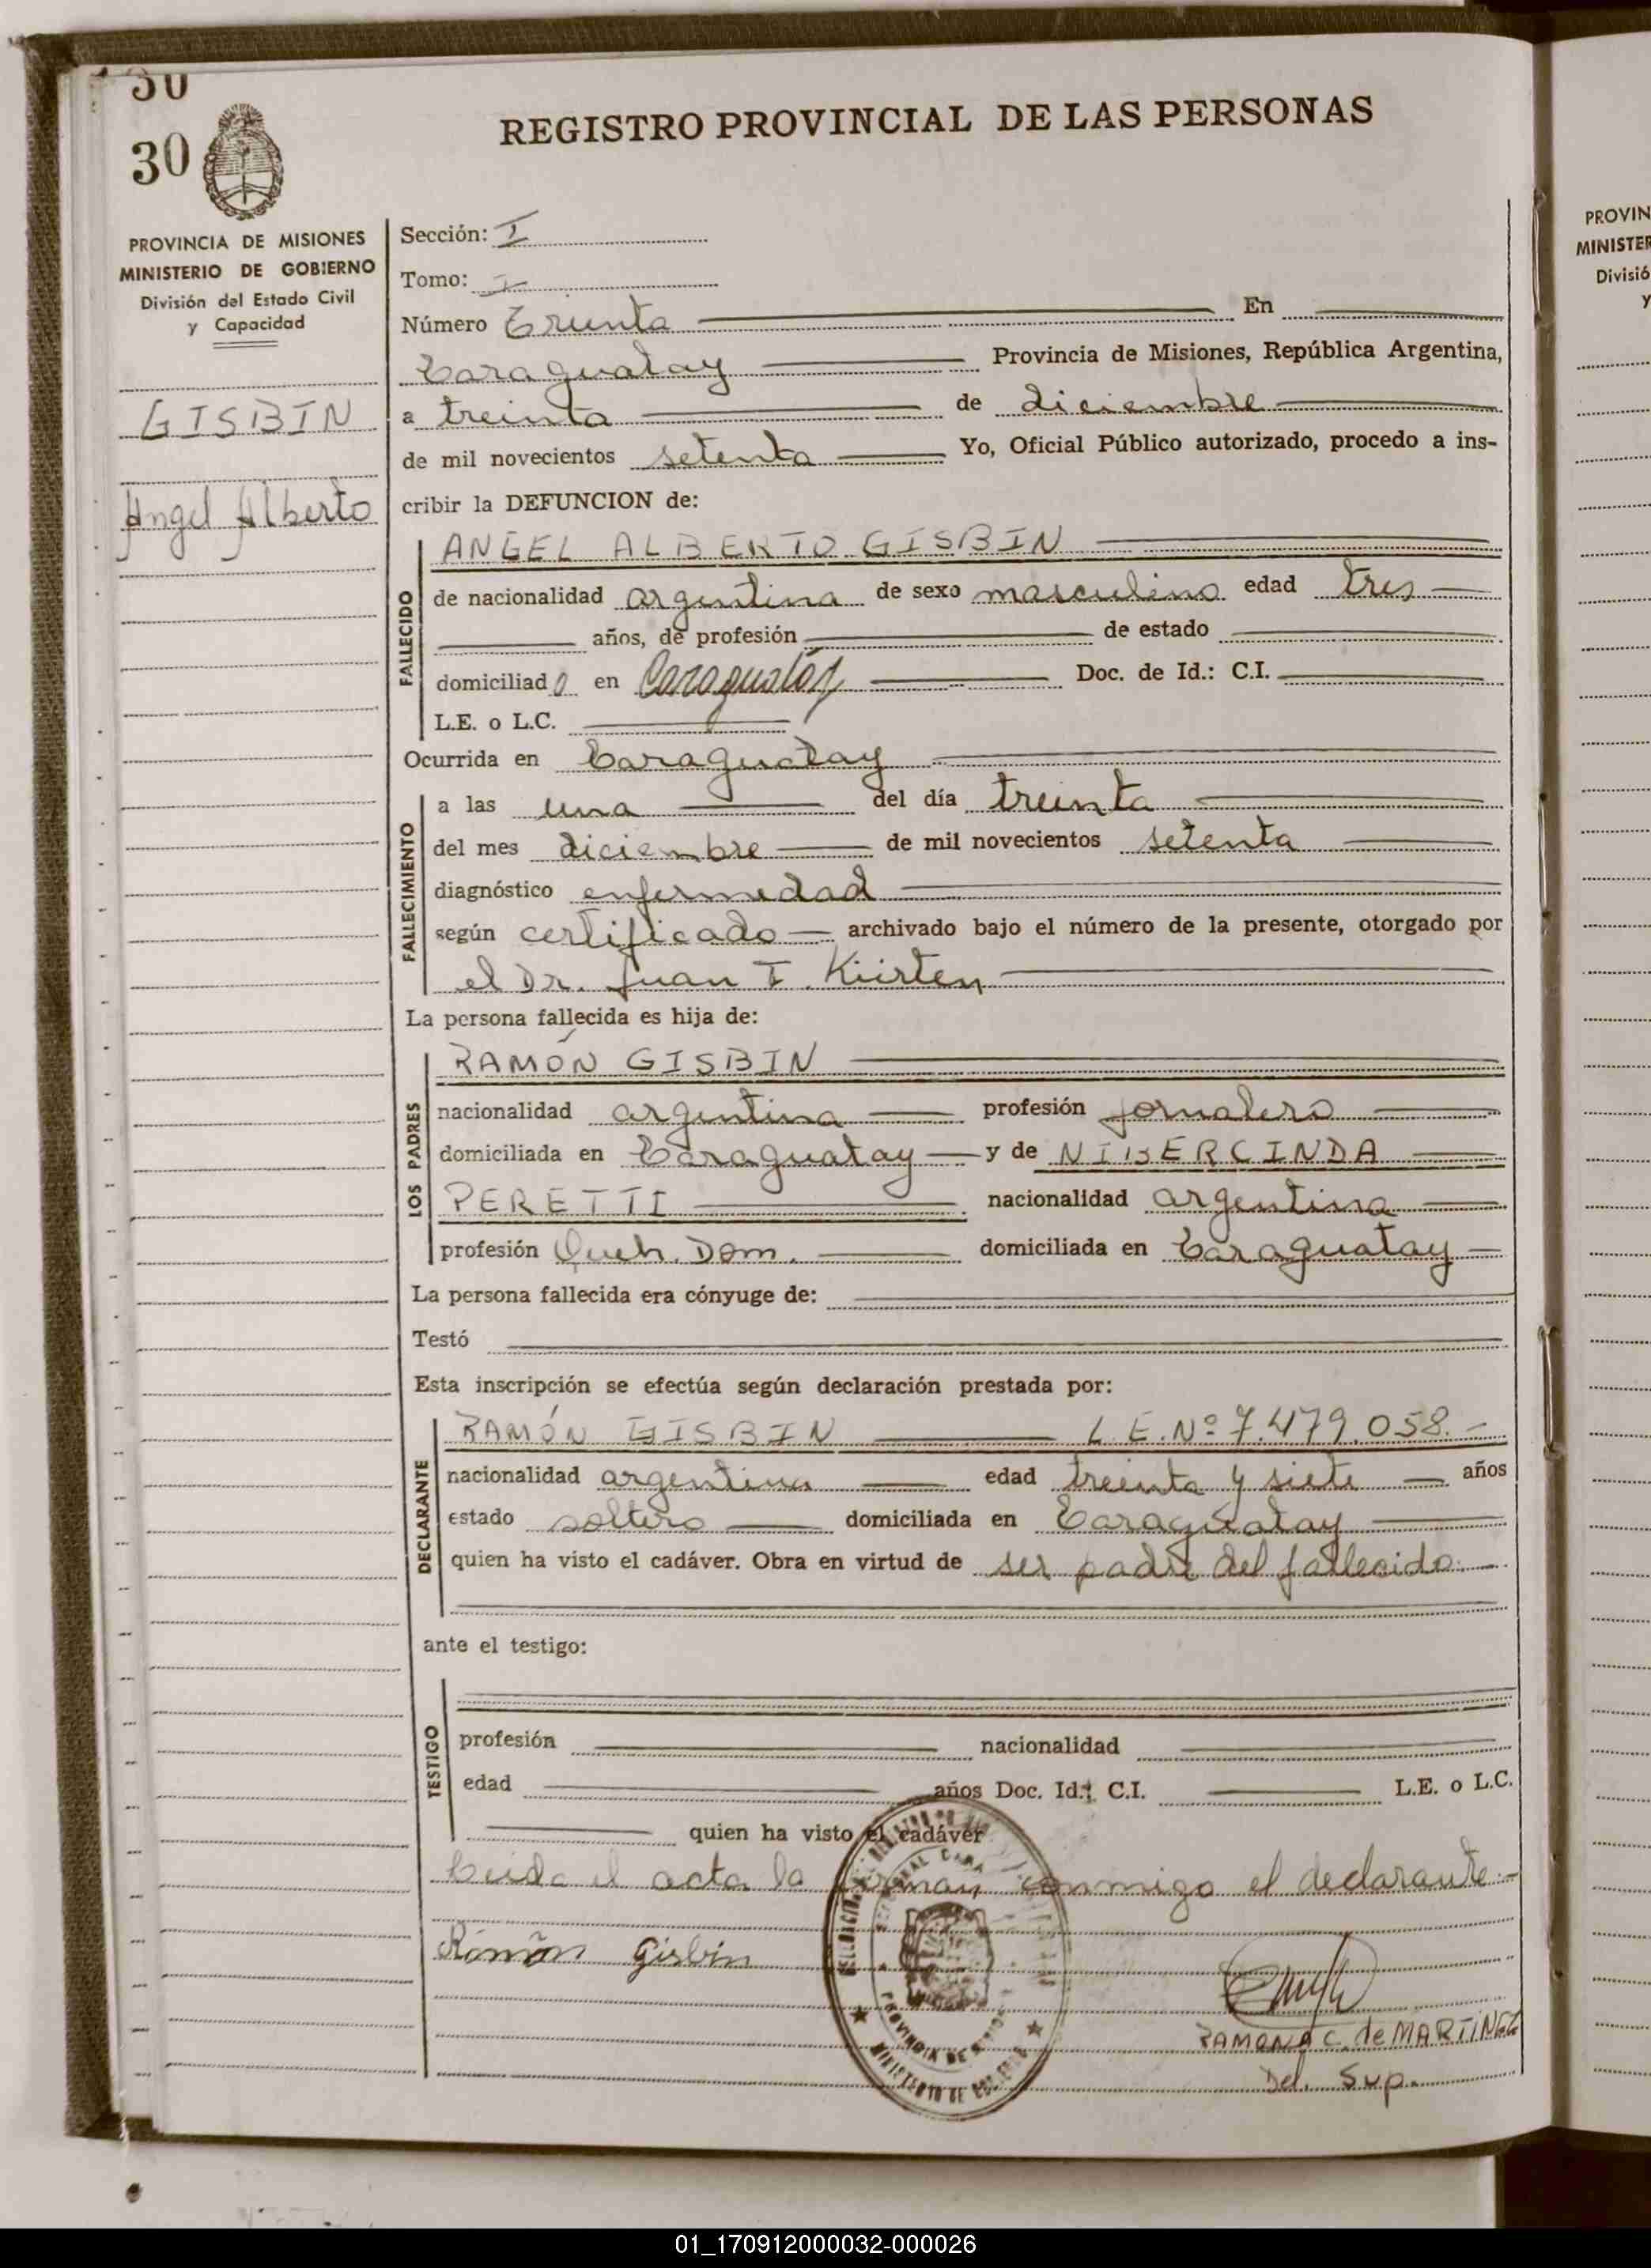 30
30
REGISTRO PROVINCIAL DE LAS PERSONAS
PROVINCIA DE MISIONES
MINISTERIO DE GOBIERNO
División del Estado Civil
y Capacidad
GISBIN
Angel Alberto
Sección: I
Tomo: I
Número Treinta En
Caraguatay Provincia de Misiones, República Argentina,
a treinta de diciembre
de mil novecientos setenta Yo, Oficial Público autorizado, procedo a ins-
cribir la DEFUNCION de:
FALLECIDO
ANGEL ALBERTO GISBIN
de nacionalidad argentina de sexo masculino edad tres
años, de profesión de estado
domiciliado en Caraguatay Doc. de Id.: C.I.
L.E. o L.C.
Ocurrida en Caraguatay
FALLECIMIENTO
a las una del día treinta
del mes diciembre de mil novecientos setenta
diagnóstico enfermedad
según certificado archivado bajo el número de la presente, otorgado por
el Dr. Juan T. Kürten
La persona fallecida es hija de:
LOS PADRES
RAMÓN GISBIN
nacionalidad argentina profesión jornalero
domiciliada en Caraguatay y de NIBERCINDA
PERETTI nacionalidad argentina
profesión Queh. Dom. domiciliada en Caraguatay
La persona fallecida era cónyuge de:
Testó
Esta inscripción se efectúa según declaración prestada por:
DECLARANTE
RAMÓN GISBIN L.E. Nº 7.479.058.-
nacionalidad argentina edad treinta y siete años
estado soltero domiciliada en Caraguatay
quien ha visto el cadáver. Obra en virtud de ser padre del fallecido.
ante el testigo:
TESTIGO
profesión nacionalidad
edad años Doc. Id.: C.I. L.E. o L.C.
quien ha visto el cadáver
Leida el acta la firman conmigo el declarante.-
Ramón Gisbin
PROVINCIA DE
MINISTERIO DE
RAMONA C. de MARTINEZ
Del. Sup.
PROVIN
MINISTER
Divisió
y
01_170912000032-000026